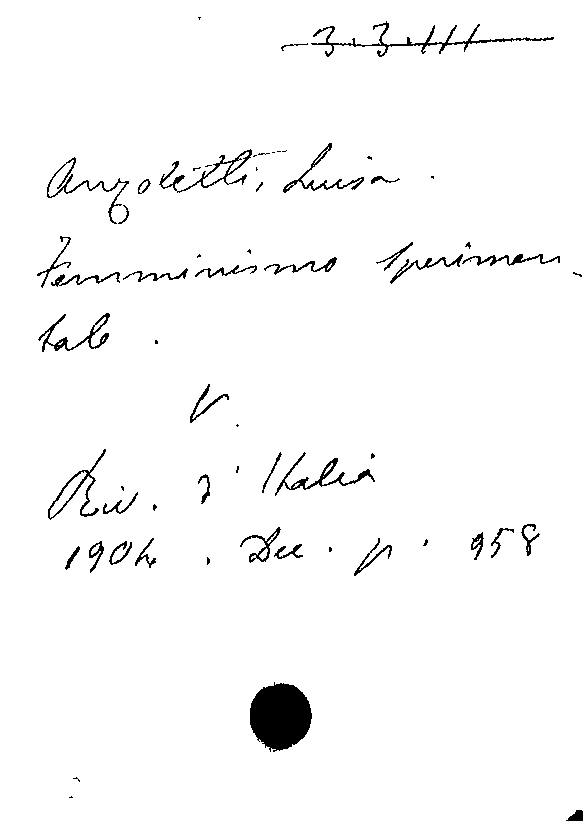 3.3.111
Anzoletti, Luisa.
Femminismo sperimen-
tale.
V.
Riv. d'Italia
1904. Dec. p. 958